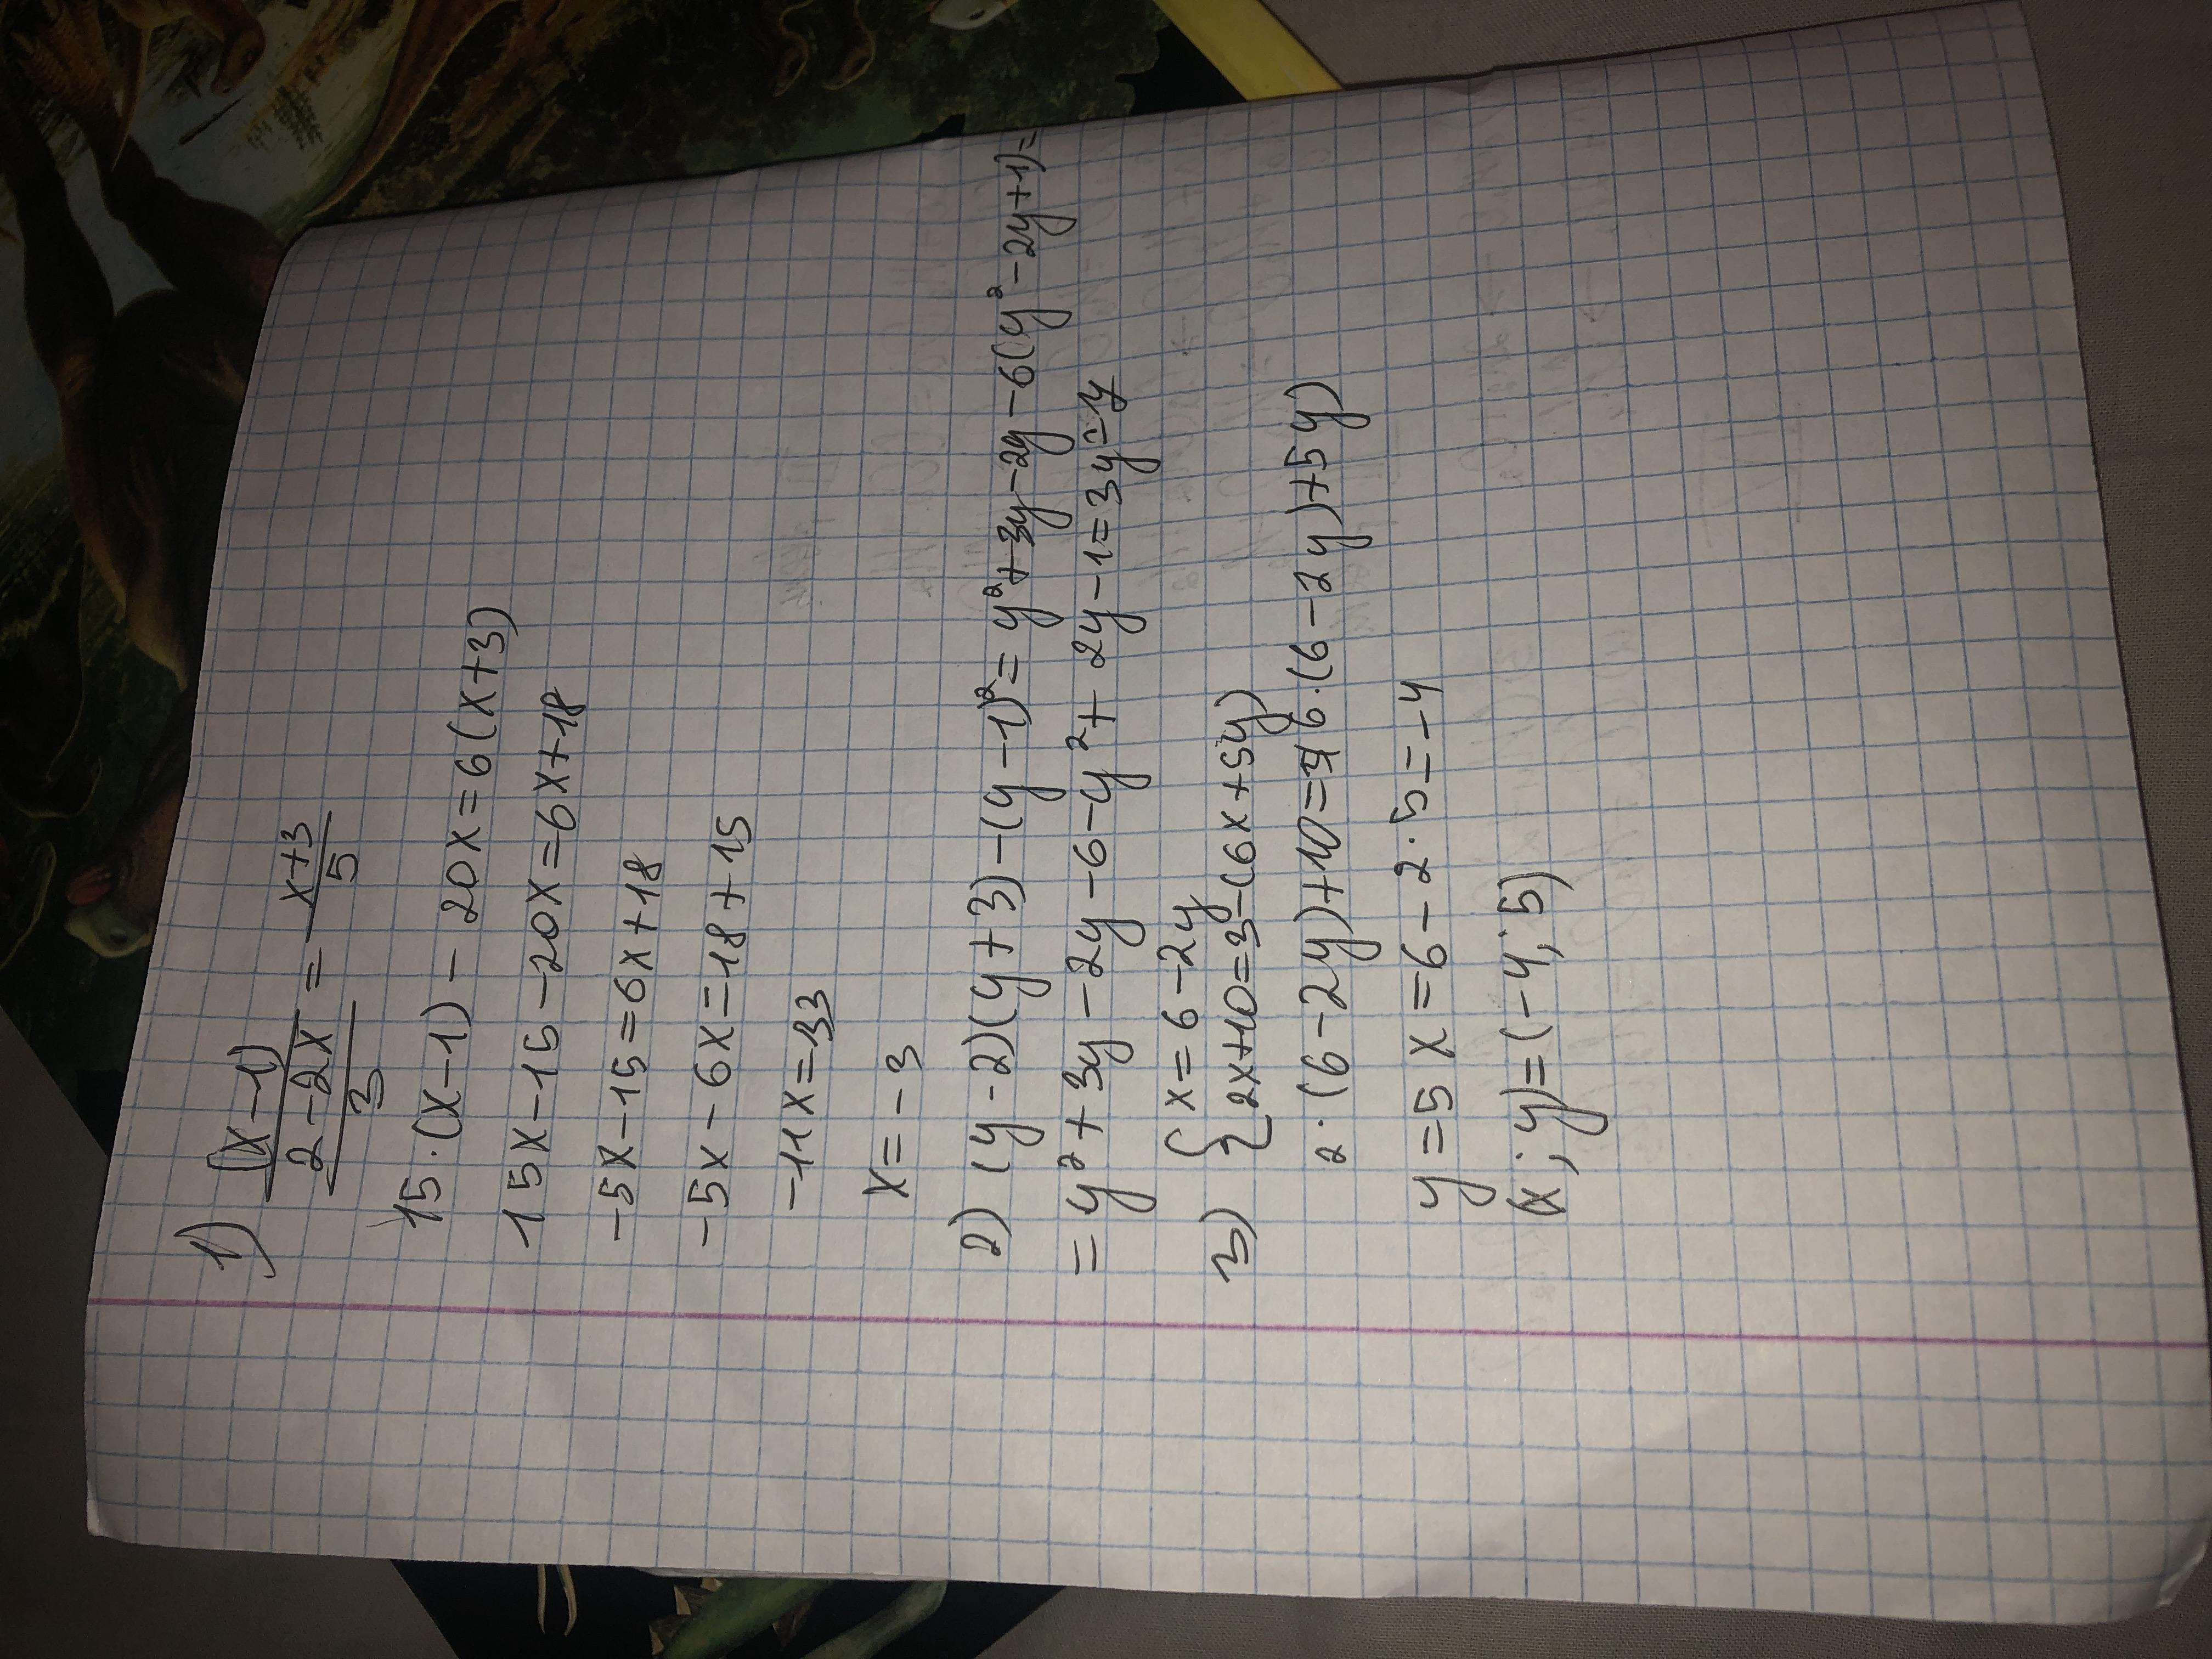 1) (x-1)
2-2x = x+3
3 5
15·(x-1) - 20x=6(x+3)
15x-15-20x=6x+18
-5x-15=6x+18
-5x-6x=18+15
-11x=33
x=-3
2) (y-2)(y+3)-(y-1)²=y²+3y-2y-6(y²-2y+1)=
=y²+3y-2y-6-y²+2y-1=3y=y
3) { x=6-2y
2x+10=3-(6x+5y)
2·(6-2y)+10= 6·(6-2y)+5y)
y=5 x=6-2·5=-4
(x;y)=(-4;5)